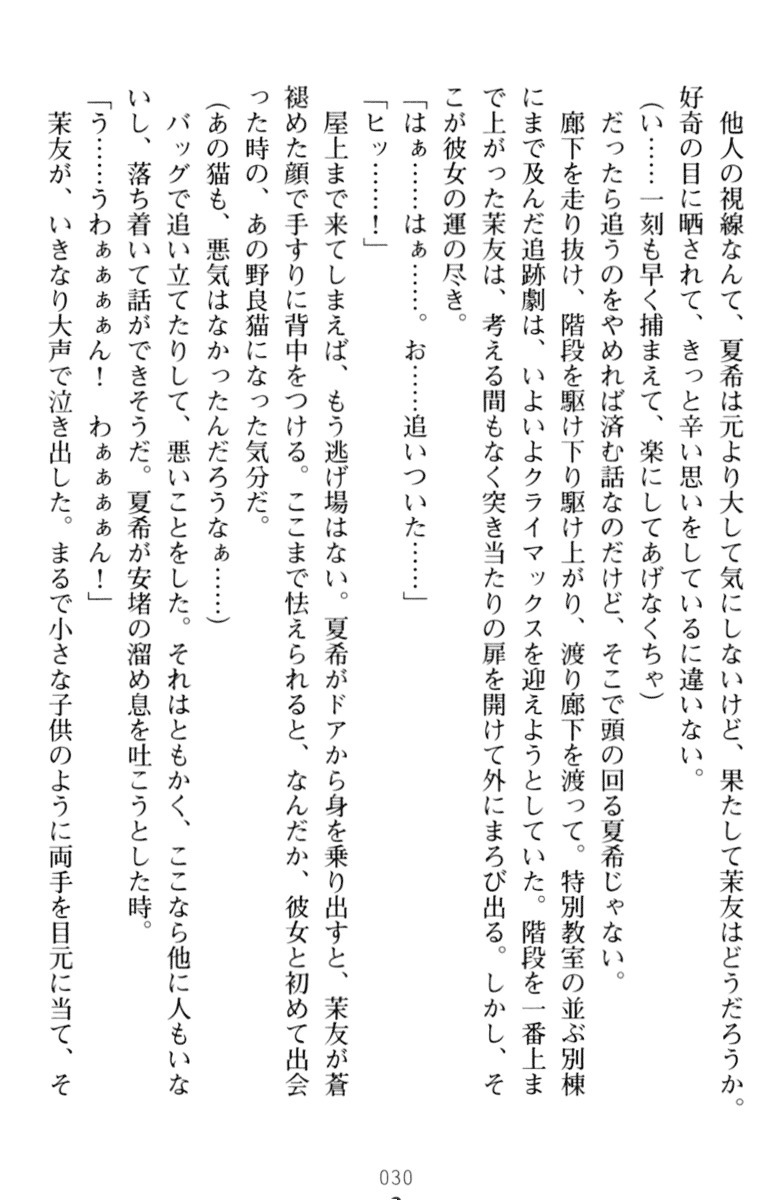 他人の視線なんて、夏希は元より大して気にしないけど、果たして茉友はどうだろうか。
好奇の目に晒されて、きっと辛い思いをしているに違いない。
(い……一刻も早く捕まえて、楽にしてあげなくちゃ)
だったら追うのをやめれば済む話なのだけど、そこで頭の回る夏希じゃない。
廊下を走り抜け、階段を駆け下り駆け上がり、渡り廊下を渡って。特別教室の並ぶ別棟
にまで及んだ追跡劇は、いよいよクライマックスを迎えようとしていた。階段を一番上ま
で上がった茉友は、考える間もなく突き当たりの扉を開けて外にまろび出る。しかし、そ
こが彼女の運の尽き。
「はぁ……はぁ……。お……追いついた……」
「ヒッ……！」
屋上まで来てしまえば、もう逃げ場はない。夏希がドアから身を乗り出すと、茉友が蒼
褪めた顔で手すりに背中をつける。ここまで怯えられると、なんだか、彼女と初めて出会
った時の、あの野良猫になった気分だ。
(あの猫も、悪気はなかったんだろうなぁ……)
バッグで追い立てたりして、悪いことをした。それはともかく、ここなら他に人もいな
いし、落ち着いて話ができそうだ。夏希が安堵の溜め息を吐こうとした時。
「う……うわぁぁぁぁん！　わぁぁぁぁん！」
茉友が、いきなり大声で泣き出した。まるで小さな子供のように両手を目元に当て、そ
030